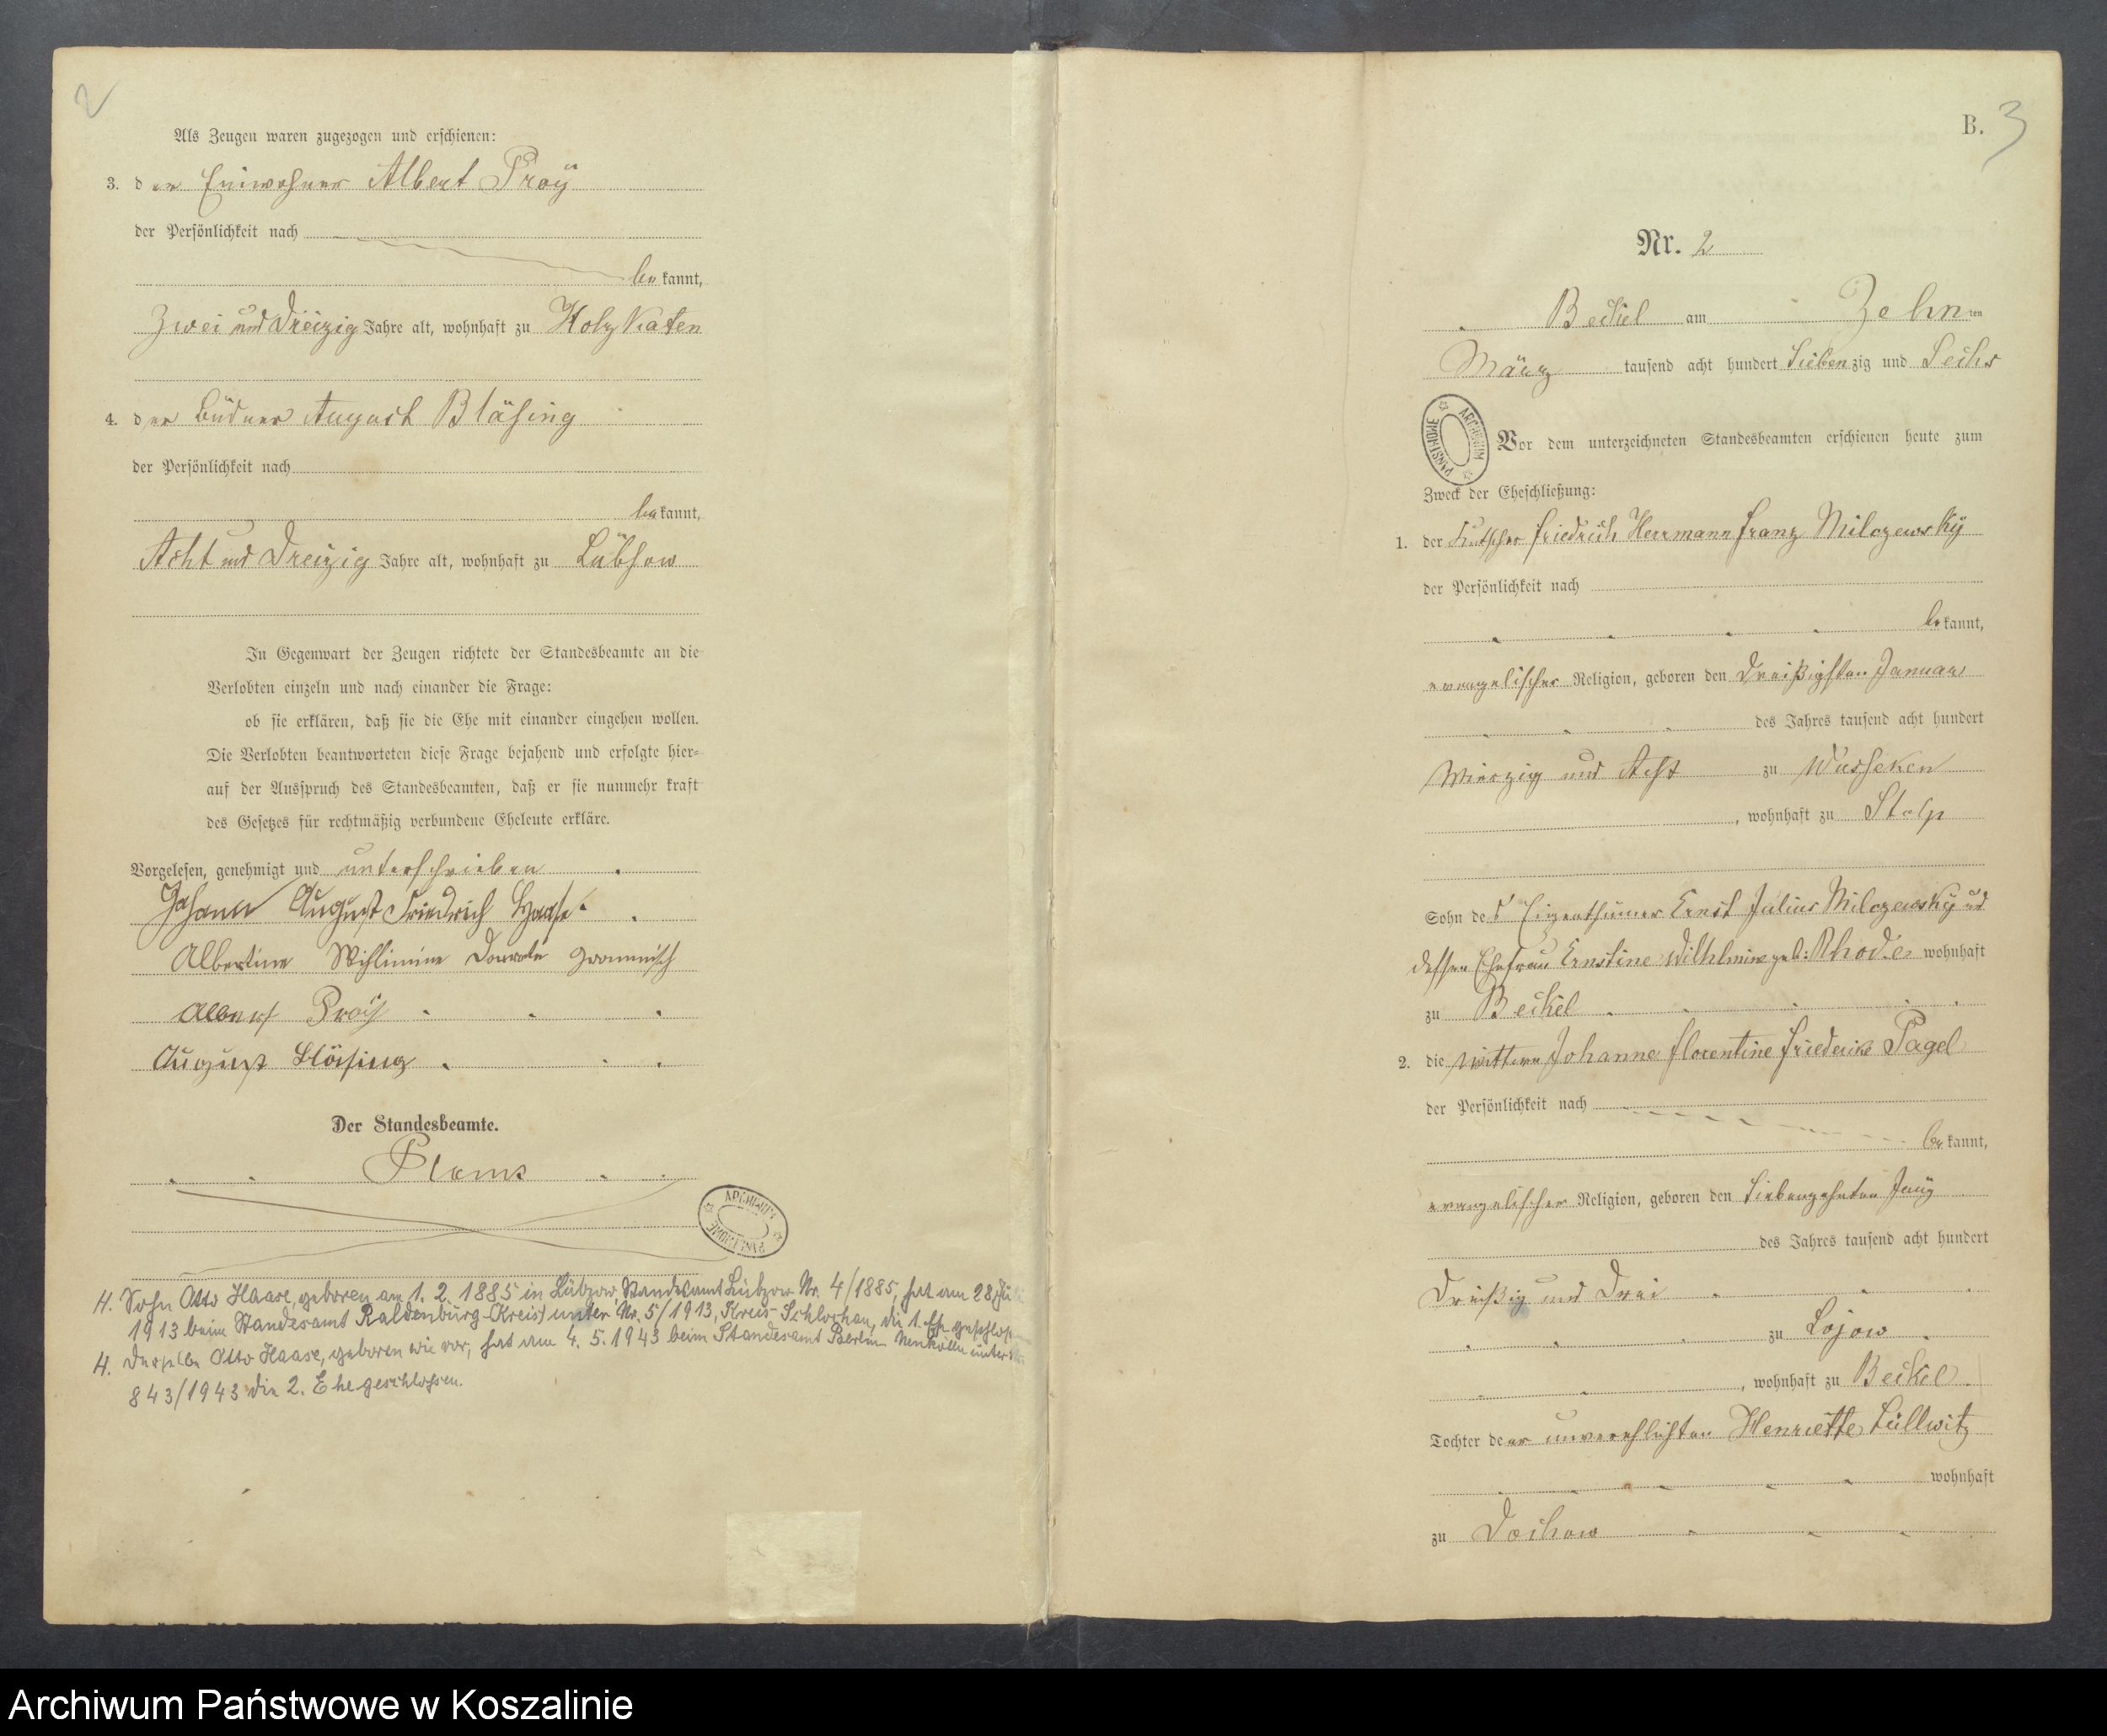 2
Als Zeugen waren zugezogen und erschienen:
3. der Einwohner Albert Proÿ
der Persönlichkeit nach
bekannt,
Zwei und Dreizig Jahre alt, wohnhaft zu Holzkaten
4. der Büdner August Bläsing
der Persönlichkeit nach
bekannt,
Acht und Dreizig Jahre alt, wohnhaft zu Lübsow
In Gegenwart der Zeugen richtete der Standesbeamte an die
Verlobten einzeln und nach einander die Frage:
ob sie erklären, daß sie die Ehe mit einander eingehen wollen.
Die Verlobten beantworteten diese Frage bejahend und erfolgte hier-
auf der Ausspruch des Standesbeamten, daß er sie nunmehr kraft
des Gesetzes für rechtmäßig verbundene Eheleute erkläre.
Vorgelesen, genehmigt und unterschrieben
Johann August Friedrich Haase
Albertine
Albert Proÿ
August Bläsing
Der Standesbeamte.
ARCHIWUM PAŃSTWOWE
H. Sohn Otto Haase, geboren am 1. 2. 1885 in Lübzow, Standesamt Lübzow Nr. 4/1885, hat am 28.
1913 beim Standesamt Baldenburg (Kreis) unter Nr. 5/1913, Kreis Schlochau, die 1. Ehe geschlossen
H. Derselbe Otto Haase, geboren wie vor, hat am 4. 5. 1943 beim Standesamt Berlin Neukölln unter Nr.
843/1943 die 2. Ehe geschlossen.
B. 3
Nr. 2
Beckel am Zehnten
März tausend acht hundert Siebenzig und Sechs
ARCHIWUM PAŃSTWOWE
Vor dem unterzeichneten Standesbeamten erschienen heute zum
Zweck der Eheschließung:
1. der Kutscher Friedrich Herrmann Franz Milczewskÿ
der Persönlichkeit nach
bekannt,
evangelischer Religion, geboren den Dreißigsten Januar
des Jahres tausend acht hundert
Vierzig und Acht zu Wusseken
, wohnhaft zu Stolp
Sohn des Eigenthümer Ernst Julius Milczewskÿ und
dessen Ehefrau Ernstine Wilhlmine geb: Rhode wohnhaft
zu Beckel
2. die Wittwe Johanne Florentine Friederike Pagel
der Persönlichkeit nach
bekannt,
evangelischer Religion, geboren den Siebenzehnten
des Jahres tausend acht hundert
Dreißig und Drei
zu Lojow
, wohnhaft zu Beckel
Tochter der unverehlichten Henriette Lüllwitz
wohnhaft
zu Dochow
Archiwum Państwowe w Koszalinie